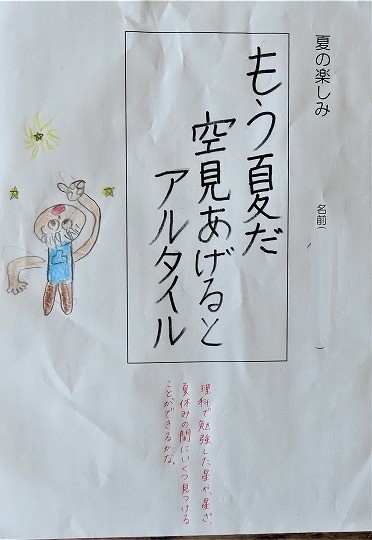 夏の楽しみ
名前( )
もう夏だ
空見あげると
アルタイル
理科で勉強した星や、星ざ、
夏休みの間にいくつ見つける
ことができるかな。